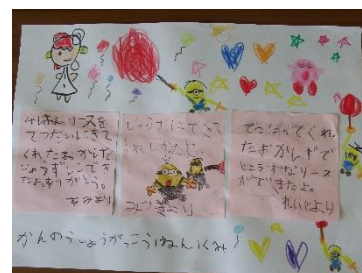 リースを
てつだいにきて
くれたおかげで
じょうずにできた
よ。ありがとう。
より
じょうずにできて
うれしかったよ。
みつきより
てつだってくれ
たおかげで
じょうずなリース
ができましたよ。
れいじより
かんのうしょうがっこう